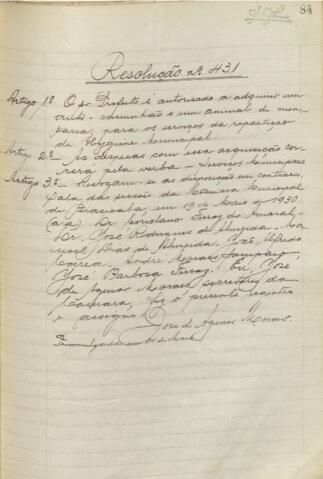 84
Resolução nº 431
Artigo 1º O sr. Prefeito é autorizado a adquirir um
auto-caminhão e um animal de mon-
taria, para os serviços da repartição
de Hygiene Municipal.
Artigo 2º As despesas com essa acquisição cor-
rerá pela verba - Serviços Municipaes
Artigo 3º Revogam-se as disposições em contrario.
Sala das sessões da Camara Municipal
de Piracicaba, em 19 de Maio de 1930
(a.a) Dr. Coriolano Ferraz do Amaral,
Dr. José Rodrigues de Almeida, Ma-
noel Dias de Almeida, João Alfredo
Corrêa, André Moraes Sampaio,
José Barbosa Ferraz. Eu, José
de Aguiar Moraes, secretario da
Camara, fiz o presente registro
e assigno.
José de Aguiar Moraes.
Promulgada em de Maio